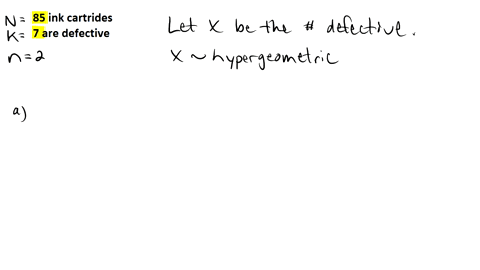 N = 85 ink cartrides
K = 7 are defective
n = 2
Let X be the # defective.
X ~ hypergeometric
a)